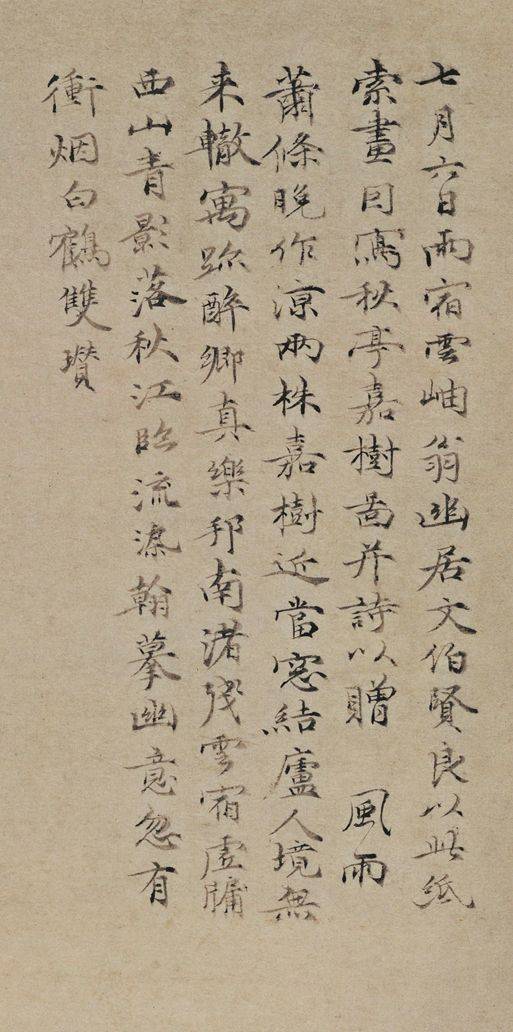 七月六日雨宿雲岫翁幽居文伯賢良以此紙
索畫因寫秋亭嘉樹啚并詩以贈　風雨
蕭條晚作涼兩株嘉樹近當窓結廬人境無
来轍寓跡醉鄉真樂邦南渚殘雲宿虛牖
西山青影落秋江臨流染翰摹幽意忽有
衝烟白鶴雙瓚